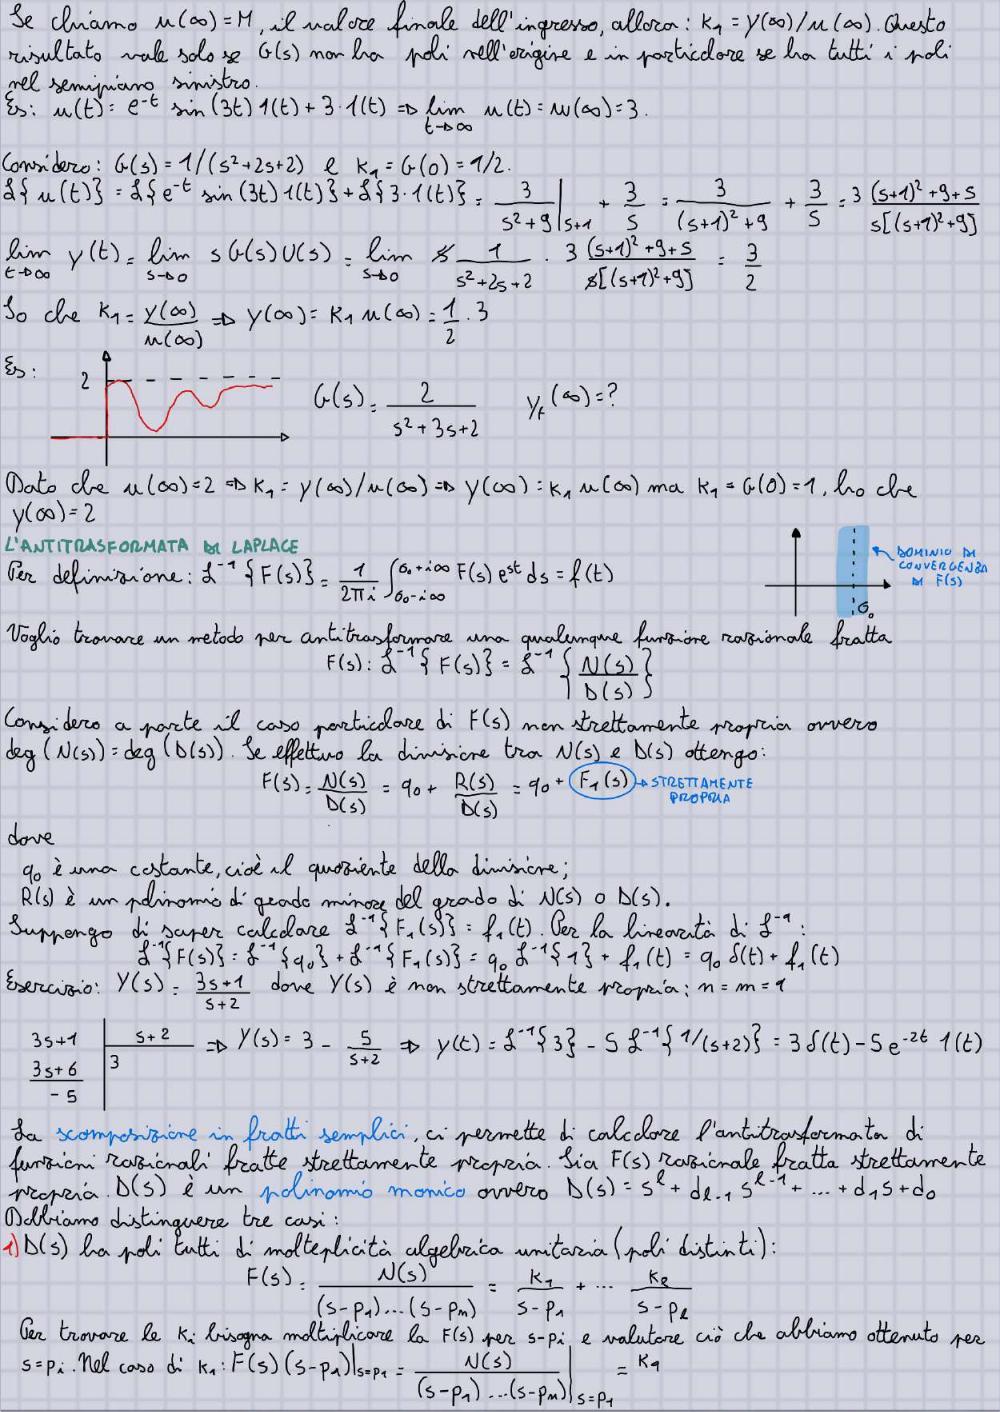 Se chiamo u(∞)=M, il valore finale dell'ingresso, allora: K₁=y(∞)/u(∞). Questo
risultato vale solo se G(s) non ha poli nell'origine e in particolare se ha tutti i poli
nel semipiano sinistro.
Es: u(t)= e^-t sin(3t)1(t)+3·1(t) => lim t→∞ u(t)=u(∞)=3.
Considero: G(s)=1/(s²+2s+2) e K₁=G(0)=1/2.
ℒ{u(t)} = ℒ{e^-t sin(3t)1(t)}+ℒ{3·1(t)} = 3/(s²+9)|s+1 + 3/s = 3/((s+1)²+9) + 3/s = 3 ((s+1)²+9+s)/(s[(s+1)²+9])
lim t→∞ y(t) = lim s→0 sG(s)U(s) = lim s→0 s 1/(s²+2s+2) · 3 ((s+1)²+9+s)/(s[(s+1)²+9]) = 3/2
So che K₁ = y(∞)/u(∞) => y(∞)= K₁ u(∞) = 1/2 · 3
Es:
2
G(s) = 2/(s²+3s+2) y_f(∞)=?
Dato che u(∞)=2 => K₁ = y(∞)/u(∞) => y(∞) = K₁ u(∞) ma K₁ = G(0)=1, ho che
y(∞)=2
L'ANTITRASFORMATA DI LAPLACE
Per definizione: ℒ⁻¹{F(s)} = 1/(2πi) ∫_{σ₀-i∞}^{σ₀+i∞} F(s) e^st ds = f(t)
DOMINIO DI
CONVERGENZA
DI F(s)
σ₀
Voglio trovare un metodo per antitrasformare una qualunque funzione razionale fratta
F(s): ℒ⁻¹{F(s)} = ℒ⁻¹{N(s)/D(s)}
Considero a parte il caso particolare di F(s) non strettamente propria ovvero
deg(N(s))=deg(D(s)). Se effettuo la divisione tra N(s) e D(s) ottengo:
F(s) = N(s)/D(s) = q₀ + R(s)/D(s) = q₀ + F₁(s) → STRETTAMENTE
PROPRIA
dove
q₀ è una costante, cioè il quoziente della divisione;
R(s) è un polinomio di grado minore del grado di N(s) o D(s).
Suppongo di saper calcolare ℒ⁻¹{F₁(s)} = f₁(t). Per la linearità di ℒ⁻¹:
ℒ⁻¹{F(s)} = ℒ⁻¹{q₀} + ℒ⁻¹{F₁(s)} = q₀ ℒ⁻¹{1} + f₁(t) = q₀ δ(t) + f₁(t)
Esercizio: Y(s) = (3s+1)/(s+2) dove Y(s) è non strettamente propria: n=m=1
3s+1 | s+2
3s+6 | 3
-5
=> Y(s) = 3 - 5/(s+2) => y(t) = ℒ⁻¹{3} - 5 ℒ⁻¹{1/(s+2)} = 3δ(t) - 5e^-2t 1(t)
La scomposizione in fratti semplici, ci permette di calcolare l'antitrasformata di
funzioni razionali fratte strettamente propria. Sia F(s) razionale fratta strettamente
propria. D(s) è un polinomio monico ovvero D(s) = s^ℓ + d_ℓ-1 s^ℓ-1 + ... + d₁s + d₀
Dobbiamo distinguere tre casi:
1) D(s) ha poli tutti di molteplicità algebrica unitaria (poli distinti):
F(s) = N(s)/((s-p₁)...(s-pₘ)) = K₁/(s-p₁) + ... K_ℓ/(s-p_ℓ)
Per trovare le Kᵢ bisogna moltiplicare la F(s) per s-pᵢ e valutare ciò che abbiamo ottenuto per
s=pᵢ. Nel caso di K₁: F(s)(s-p₁)|s=p₁ = N(s)/((s-p₁)...(s-pₘ))|s=p₁ = K₁